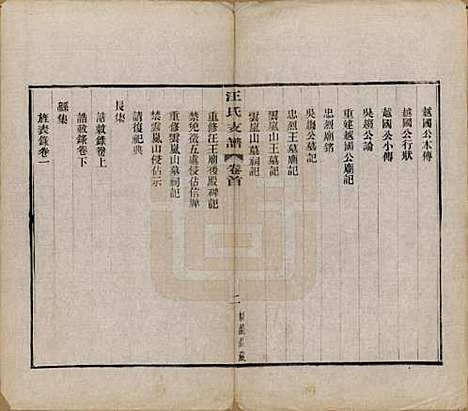 越國公本傳
越國公行狀
越國公小傳
吳越公論
重建越國公廟記
忠烈廟銘
吳清公墓記
忠烈王廟記
雲嵐山王墓記
雲嵐山墓祠記
汪氏支譜 卷首 二
重修汪王廟後殿碑記
禁免汪五處侵佔信牌
重修雲嵐山墓祠記
禁雲嵐山侵佔示
請復祀典
長集
誥敕錄卷上
誥敕錄卷下
經集
旌表錄卷一